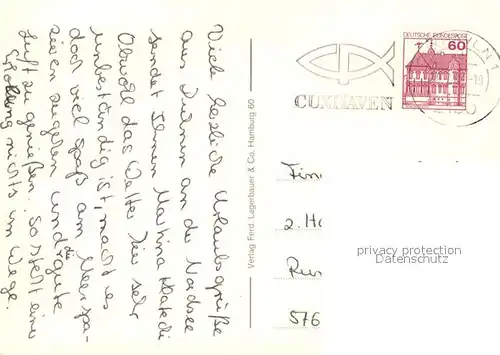 Viele herzliche Urlaubsgrüße
aus Duhnen an der Nordsee
sendet Ihnen Martina
Obwohl das Wetter hier sehr
unbeständig ist, macht es
doch viel Spaß am Meer spa-
zieren zugehen und die gute
Luft zu genießen. So steht einer
Erholung nichts im Wege.
Verlag Ferd. Lagerbauer & Co. Hamburg 60
CUXHAVEN
DEUTSCHE BUNDESPOST
60
2. Ha
576
privacy protection
Datenschutz